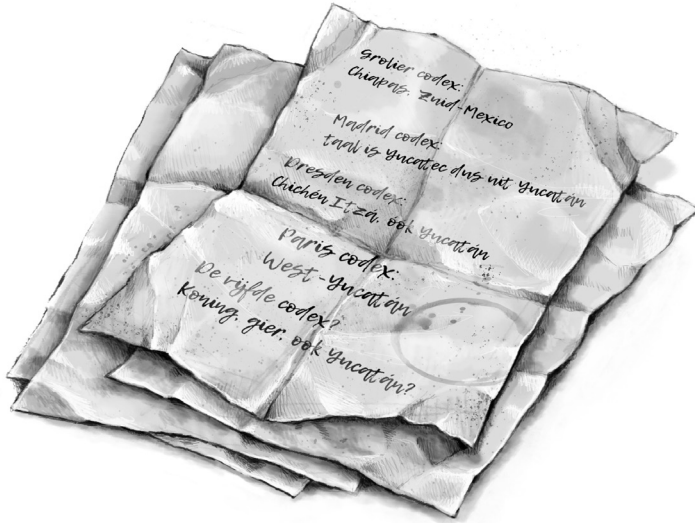 Grolier codex:
Chiapas, Zuid-Mexico
Madrid codex:
taal is Yucatec dus uit Yucatán
Dresden codex:
Chichén Itzá, ook Yucatán
Paris codex:
West-Yucatán
De vijfde codex?
Koning, gier, ook Yucatán?